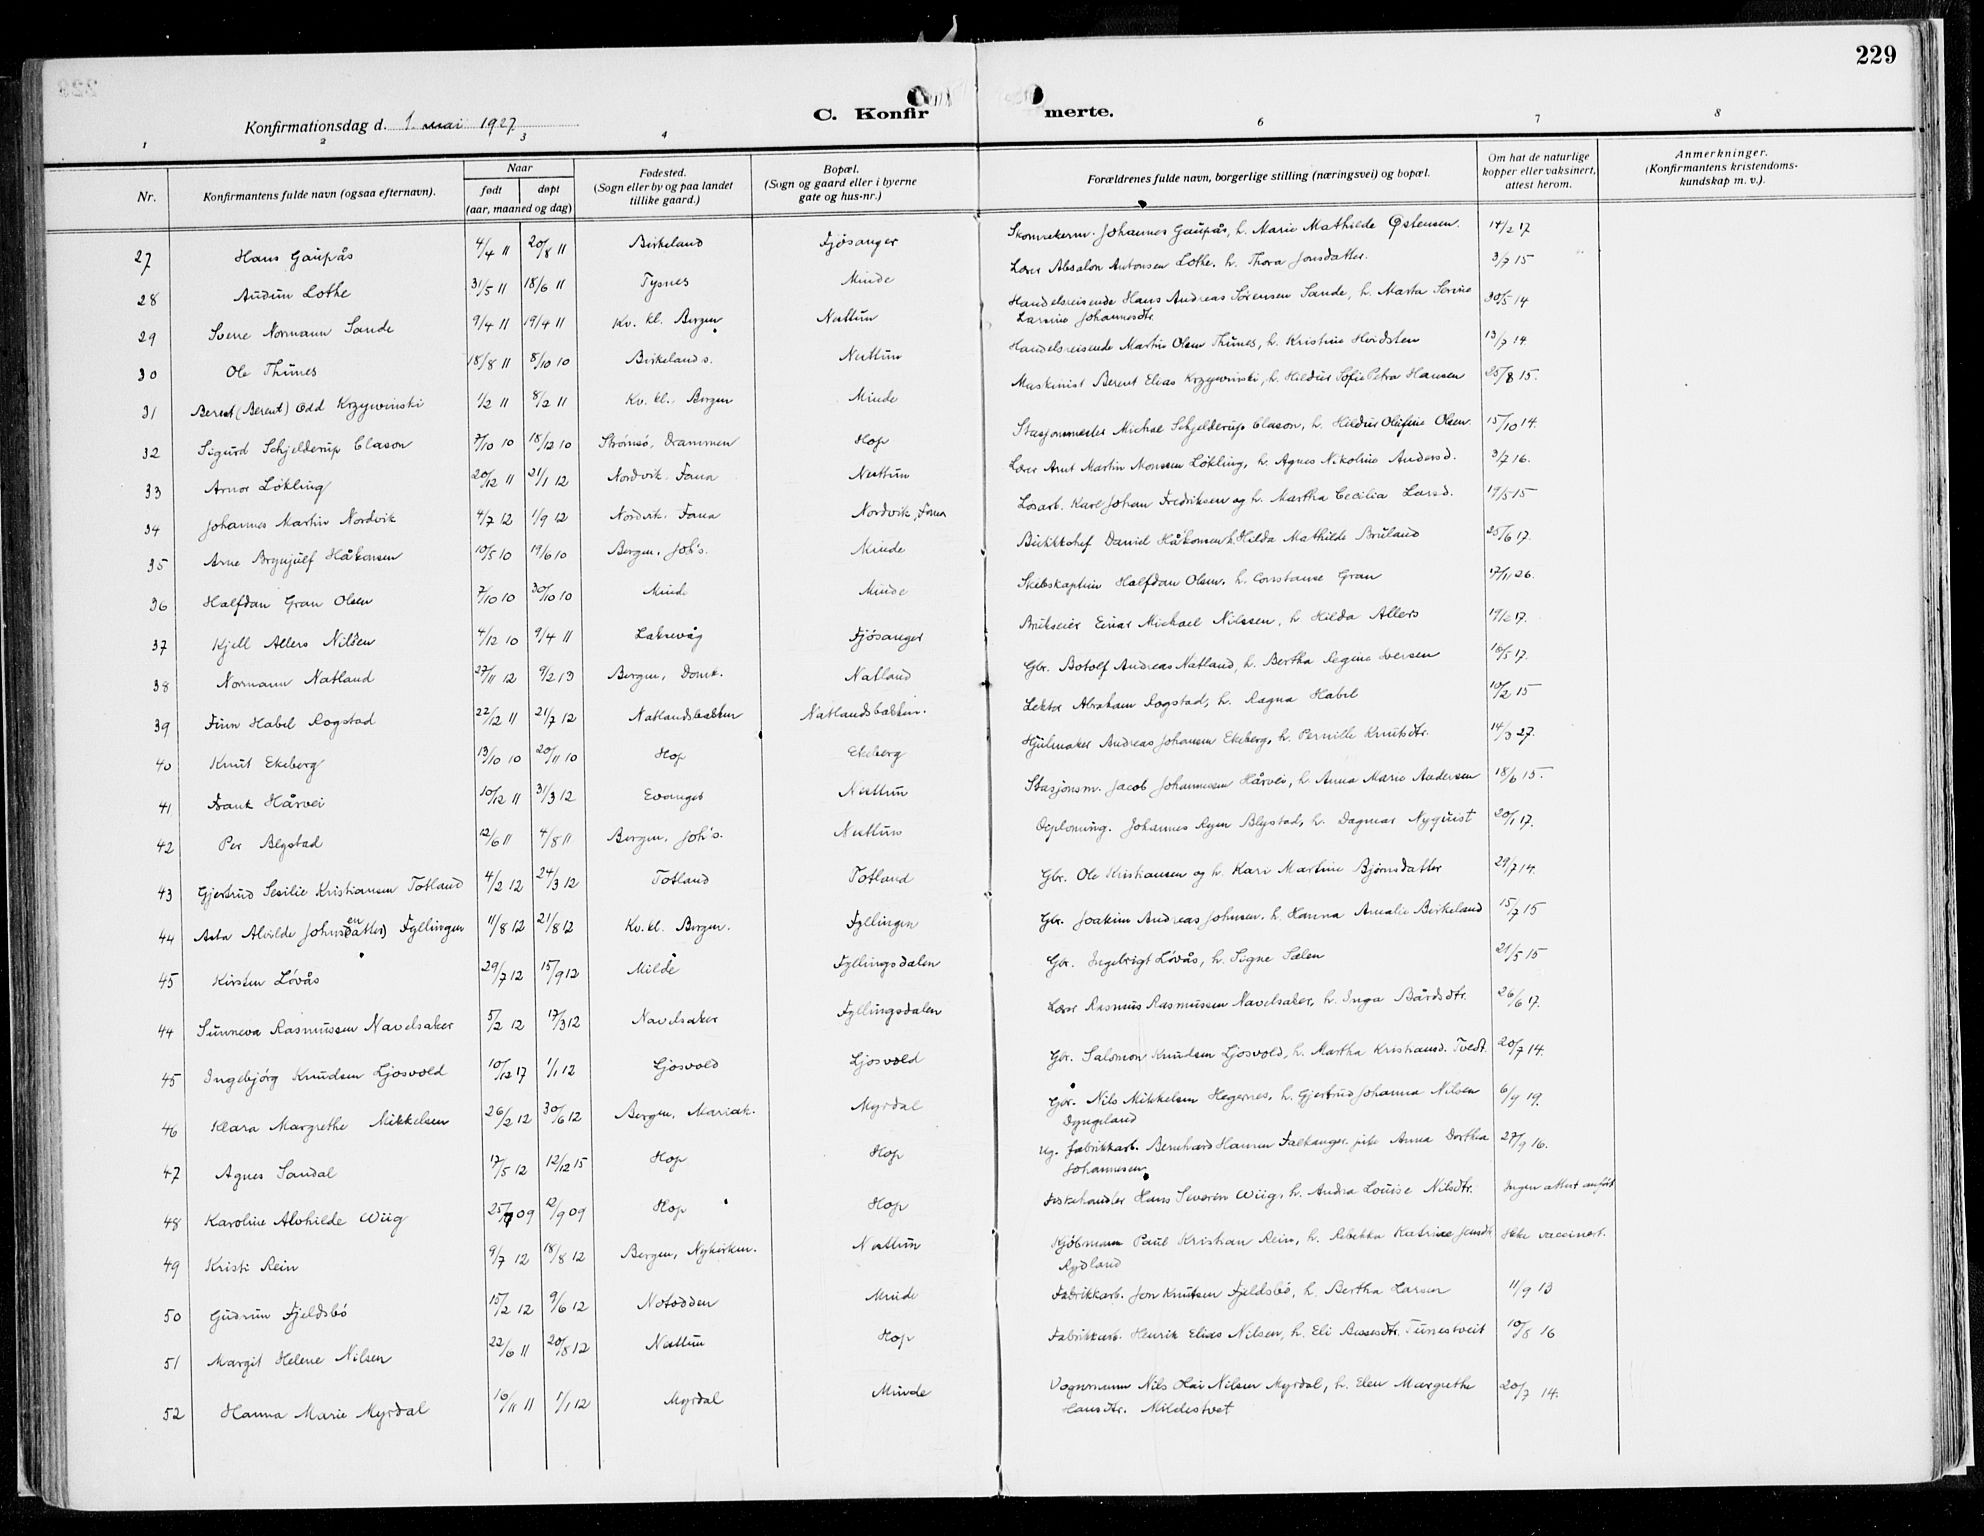 229
C. Konfirmerte.
Konfirmationsdag d. 1. mai 1927
1 2 3 4 6 7 8
Nr. Konfirmantens fulde navn (ogsaa efternavn). Naar født døpt (aar, maaned og dag) Fødested. (Sogn eller by og paa landet tillike gaard.) Bopæl. (Sogn og gaard eller i byerne gate og hus-nr.) Forældrenes fulde navn, borgerlige stilling (næringsvei) og bopæl. Om hat de naturlige kopper eller vaksinert, attest herom. Anmerkninger. (Konfirmantens kristendoms-kundskap m. v.).
27 Hans Gaupås 4/4 11 20/8 11 Birkeland Fjøsanger Johannes Gaupås, h. Marie Mathilde Østensen. 14/2 17
28 Audun Lothe 31/5 11 18/6 11 Tysnes Minde Lærer Absalon Antonsen Lothe. h. Thora Jonsdatter. 3/7 15
29 Sverre Normann Sande 9/4 11 19/4 11 Kv. kl. Bergen Nesttun Handelsreisende Hans Andreas Sørensen Sande, h. Marta Serine
Larsine Johannesdtr. 30/5 14
30 Ole Thunes 18/8 11 8/10 10 Birkelands. Nesttun Handelsreisende Martin Olsen Thunes, h. Kristine Hvidsten 13/7 14.
31 Berent (Berent) Odd Krzywinski 1/2 11 8/2 11 Kv. kl. Bergen Minde Maskinist Berent Elias Krzywinski, h. Hildur Sofie Petra Hansen 25/8 15.
32 Sigurd Schjelderup Clason 7/10 10 18/12 10 Strømsø, Drammen Hop Stasjonsmester Michael Schjelderup Clason, h. Hildur Olufine Olsen. 15/10 14.
33 Arnor Løkling 20/12 11 21/1 12 Nordvik. Fana Nesttun Lærer Arnt Martin Monssen Løkling, h. Agnes Nikoline Andersd. 3/7 16.
34 Johannes Martin Nordvik 4/7 12 1/9 12 Nordvik. Fana Nordvik, Fana Losarb. Karl Johan Fredriksen og h. Martha Cecilia Larsd. 19/5 15
35 Arne Brynjulf Håkonsen 10/5 10 19/6 10 Bergen, Joh's. Minde Daniel Håkonsen h. Hilda Mathilde Bruland 25/6 17.
36 Halfdan Gran Olsen 7/10 10 30/10 10 Minde Minde Skibskaptein Halfdan Olsen. h. Constanse Gran 17/11 26.
37 Kjell Allers Nilsen 4/12 10 9/4 11 Laksevåg Fjøsanger Brukseier Einar Michael Nilssen, h. Hilda Allers 19/2 17.
38 Normann Natland 27/11 12 9/2 13 Bergen, Domk. Natland Gbr. Botolf Andreas Natland, h. Bertha Regine Iversen 10/5 17.
39 Finn Habel Rogstad 22/12 11 21/7 12 Natlandsbakken Natlandsbakken. Lektor Abraham Rogstad, h. Ragna Habel 10/2 15
40 Knut Ekeberg 13/10 10 20/11 10 Hop Ekeberg Hjulmaker Andreas Johansen Ekeberg, h. Pernille Knutsdtr. 14/3 27.
41 Frank Hårvei 10/12 11 31/3 12 Evanger Nesttun Stasjonsm. Jacob Johannessen Hårvei, h. Anna Marie Andersen 18/6 15.
42 Per Blystad 12/6 11 4/8 11 Bergen, Joh's. Nesttun Johannes Ryen Blystad, h. Dagmar Nyquist 20/1 17.
43 Gjertrud Sesilie Kristiansen Totland 4/2 12 24/3 12 Totland Totland Gbr. Ole Kristiansen og h. Kari Martine Bjørnsdatter 29/7 14.
44 Asta Alvilde Johnsen(datter) Fyllingen 11/8 12 21/8 12 Kv. kl. Bergen. Fyllingen Gbr. Joakim Andreas Johnsen. h. Hanna Amalie Birkeland 15/7 15
45 Kirsten Løvås 29/7 12 15/9 12 Milde Fyllingsdalen Gbr. Ingebrigt Løvås, h. Signe Sælen 21/5 15
44 Sunneva Rasmussen Navelsaker 5/2 12 17/3 12 Navelsaker Fyllingsdalen Lærer Rasmus Rasmussen Navelsaker, h. Inga Bårdsdtr. 26/6 17.
45 Ingebjørg Knudsen Ljosvold 10/12 17 1/1 12 Ljosvold Ljosvold Gbr. Salomon Knudsen Ljosvold, h. Martha Kristiansd. Tvedt. 20/7 14.
46 Klara Margrethe Mikkelsen 26/2 12 30/6 12 Bergen, Mariak. Myrdal Gbr. Nils Mikkelsen Hegernes, h. Gjertrud Johanna Nilsen
Dyngeland 6/9 19.
47 Agnes Sandal 17/5 12 12/12 15 Hop Hop Ug. fabrikkarb. Bernhard Hansen Falkanger. pike Anna Dorthea
Johannesen 27/9 16.
48 Karoline Alvhilde Wiig 25/7 09 12/9 09 Hop Hop Fiskehandler Hans Severin Wiig, h. Andra Louise Nilsdtr. Ingen attest anført
49 Kristi Rein 9/7 12 18/8 12 Bergen, Nykirken. Nesttun Kjøbmann Paul Kristian Rein, h. Rebekka Katrine Jensdtr
Rydland Ikke vaccinert.
50 Gudrun Fjeldsbø 15/2 12 9/6 12 Notodden Minde Fabrikkarb. Jon Knutsen Fjeldsbø, h. Bertha Larsen 11/9 13
51 Margit Helene Nilsen 22/6 11 20/8 12 Nesttun Hop Fabrikkarb. Henrik Elias Nilsen, h. Eli Bessesdtr. Tunestveit 10/8 16
52 Hanna Marie Myrdal 10/11 11 1/1 12 Myrdal Minde Vognmann Nils Olai Nilsen Myrdal, h. Elen Margrethe
Hansdtr. Mildestvet 20/7 14.